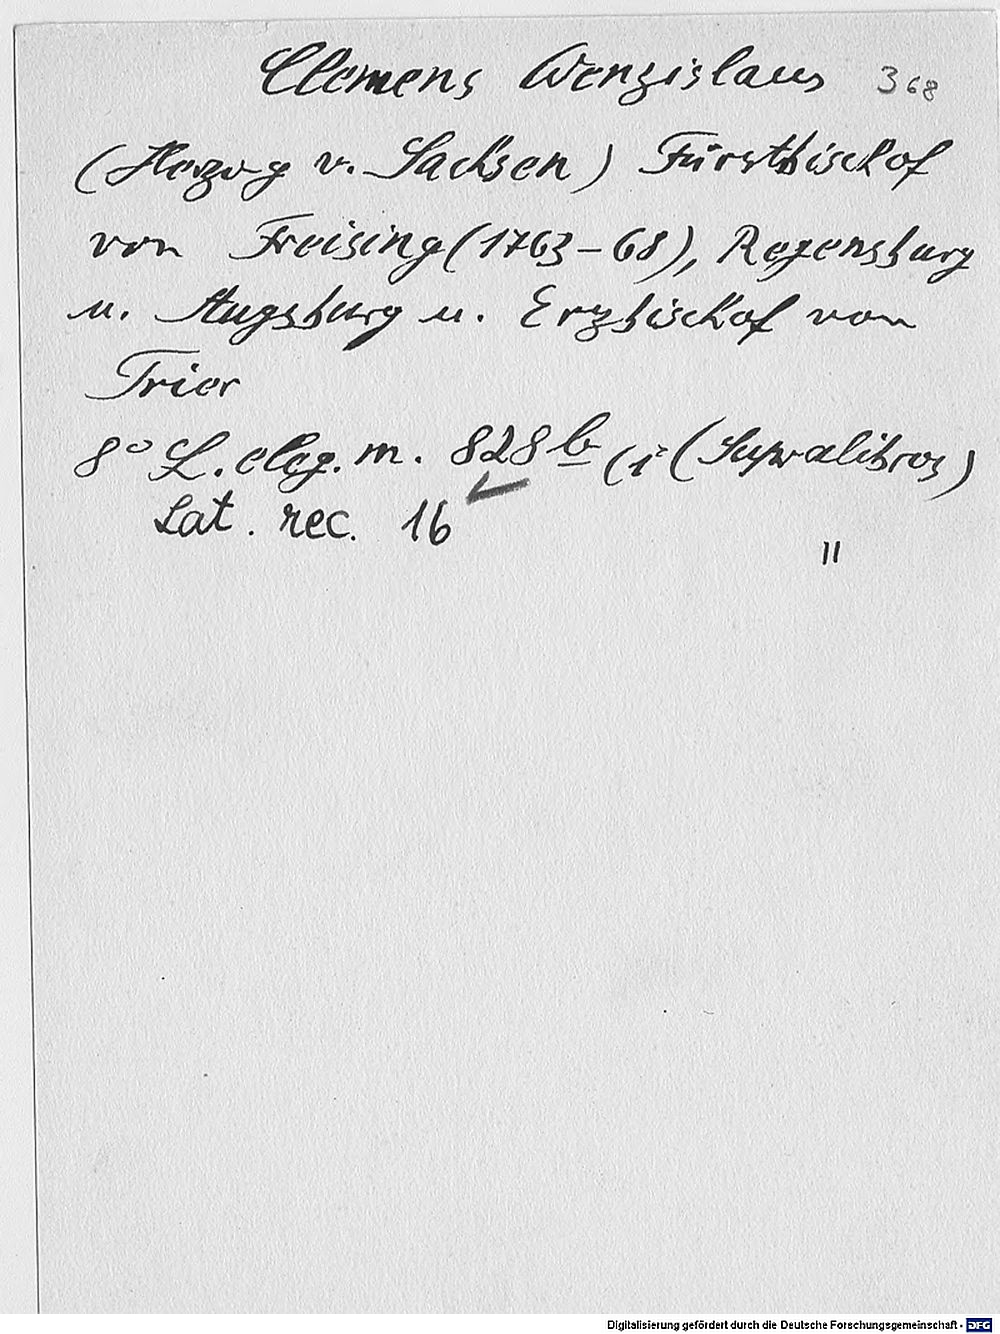 Clemens Wenzislaus 368
(Herzog v. Sachsen) Fürstbischof
von Freising (1763-68), Regensburg
u. Augsburg u. Erzbischof von
Trier
8° L. eleg. m. 828 b (i (Supralibros)
Lat. rec. 16
"
Digitalisierung gefördert durch die Deutsche Forschungsgemeinschaft - DFG